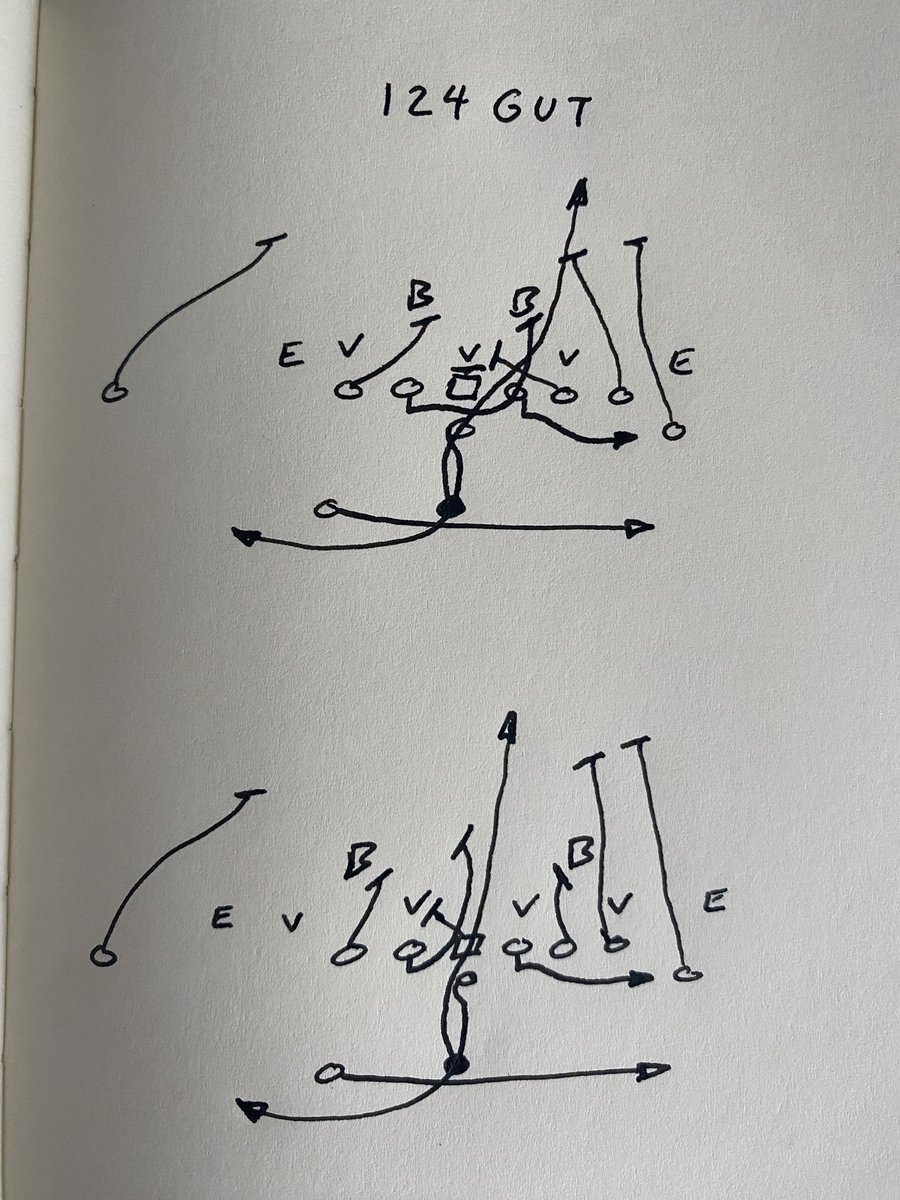 124 GUT
B B
E V V V E
B B
E V V V V E